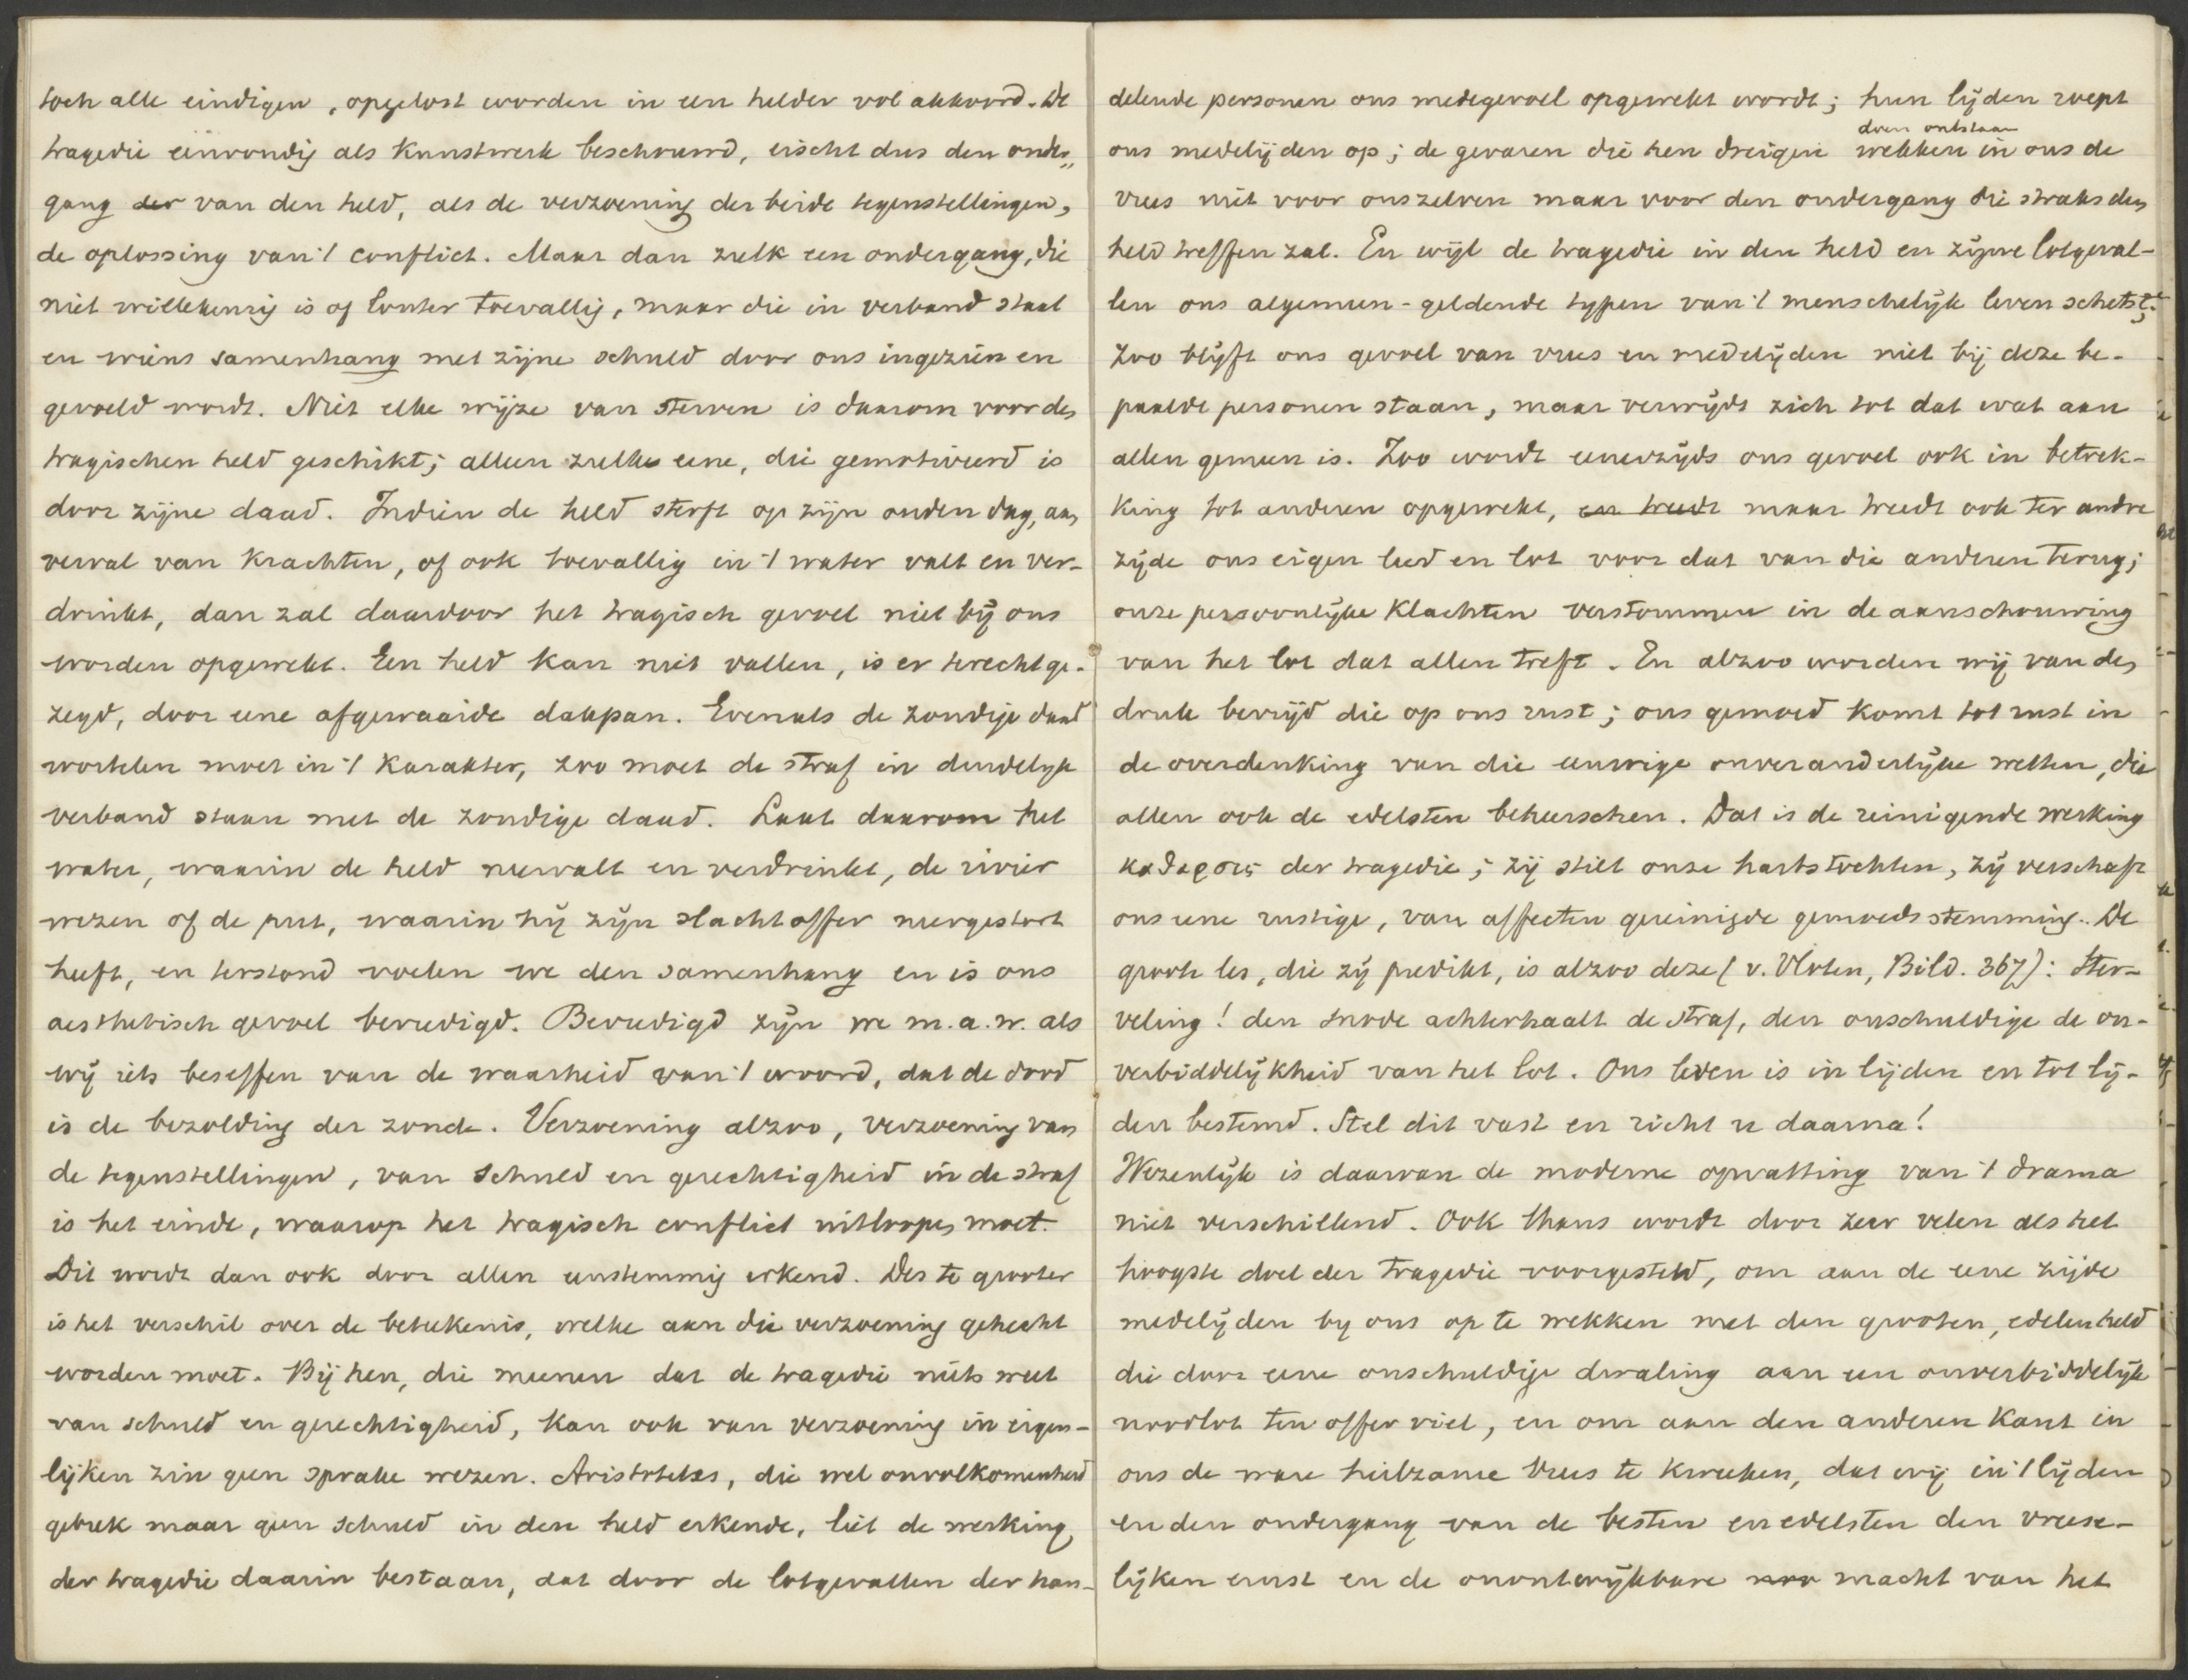 toch alle eindigen, opgelost worden in een helder vol akkoord. De
tragedie eenvoudig als kunstwerk beschouwd, eischt dus den onder„
gang der van den held, als de verzoening der beide tegenstellingen,
de oplossing van 't conflict. Maar dan zulk een ondergang, die
niet willekeurig is of louter toevallig, maar die in verband staat
en wiens samenhang met zijne schuld door ons ingezien en
gevoeld wordt. Niet elke wijze van sterven is daarom voor den
tragischen held geschikt; alleen zulke eene, die gemotiveerd is
door zijne daad. Indien de held sterft op zijn ouden dag, aan
verval van krachten, of ook toevallig in 't water valt en ver-
drinkt, dan zal daardoor het tragisch gevoel niet bij ons
worden opgewekt. Een held kan niet vallen, is er terecht ge-
zegd, door eene afgewaaide dakpan. Evenals de zondige daad
wortelen moet in 't karakter, zoo moet de straf in duidelijk
verband staan met de zondige daad. Laat daarom het
water, waarin de held neervalt en verdrinkt, de rivier
wezen of de put, waarin hij zijn slachtoffer neergestort
heeft, en terstond voelen we den samenhang en is ons
aesthetisch gevoel bevredigd. Bevredigd zijn we m.a.w. als
wij iets beseffen van de waarheid van 't woord, dat de dood
is de bezolding der zonde. Verzoening alzoo, verzoening van
de tegenstellingen, van schuld en gerechtigheid in de straf
is het einde, waarop het tragisch conflict uitloopen moet.
Dit wordt dan ook door allen eenstemmig erkend. Des te grooter
is het verschil over de beteekenis, welke aan die verzoening gehecht
worden moet. Bij hen, die meenen dat de tragedie niets weet
van schuld en gerechtigheid, kan ook van verzoening in eigen-
lijken zin geen sprake wezen. Aristoteles, die wel onvolkomenheid
gebrek maar geen schuld in den held erkende, liet de werking
der tragedie daarin bestaan, dat door de lotgevallen der han-
delende personen ons medegevoel opgewekt wordt; hun lijden roept
doen ontstaan
ons medelijden op; de gevaren die hen dreigen wekken in ons de
vrees niet voor onszelven maar voor den ondergang die straks den
held treffen zal. En wijl de tragedie in den held en zijne lotgeval-
len ons algemeen-geldende typen van 't menschelijk leven schetst;
zoo blijft ons gevoel van vrees en medelijden niet bij deze be-
paalde personen staan, maar verwijdt zich tot dat wat aan
allen gemeen is. Zoo wordt eenerzijds ons gevoel ook in betrek-
king tot anderen opgewekt, en treedt maar treedt ook ter andre
zijde ons eigen leed en lot voor dat van die anderen terug;
onze persoonlijke klachten verstommen in de aanschouwing
van het lot dat allen treft. En alzoo worden wij van den
druk bevrijd die op ons rust; ons gemoed komt tot rust in
de overdenking van die eeuwige onveranderlijke wetten, die
allen ook de edelsten beheerschen. Dat is de reinigende werking
καθαρσις der tragedie; zij stilt onze hartstochten, zij verschaft
ons eene rustige, van affecten gereinigde gemoedsstemming. De
groote les, die zij predikt, is alzoo deze (v. Vloten, Bild. 367): Ster-
veling! den snoode achterhaalt de straf, den onschuldige de on-
verbiddelijkheid van het lot. Ons leven is in lijden en tot lij-
den bestemd. Stel dit vast en richt u daarna!
Wezenlijk is daarvan de moderne opvatting van 't drama
niet verschillend. Ook thans wordt door zeer velen als het
hoogste doel der tragedie voorgesteld, om aan de eene zijde
medelijden by ons op te wekken met den grooten, edelen held
die door eene onschuldige dwaling aan een onverbiddelijk
noodlot ten offer viel, en om aan den anderen kant in
ons de ware heilzame vrees te kweeken, dat wij in 't lijden
en den ondergang van de besten en edelsten den vreese-
lijken ernst en de onontwijkbare noo macht van het